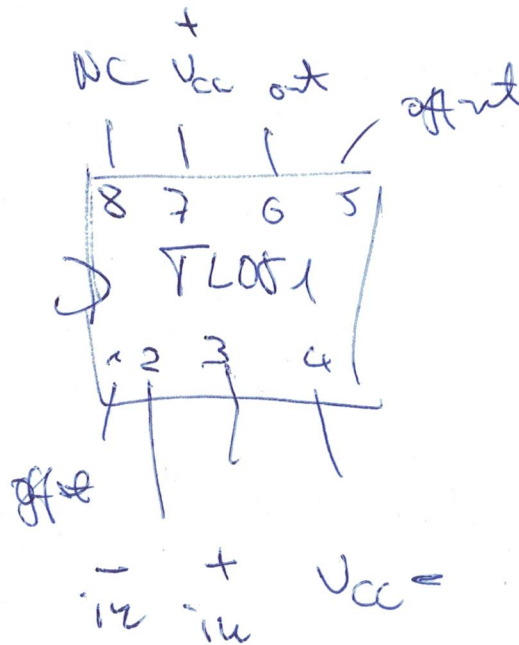 +
NC Vcc out offset
8 7 6 5
TL081
1 2 3 4
offset
- + Vcc-
in in